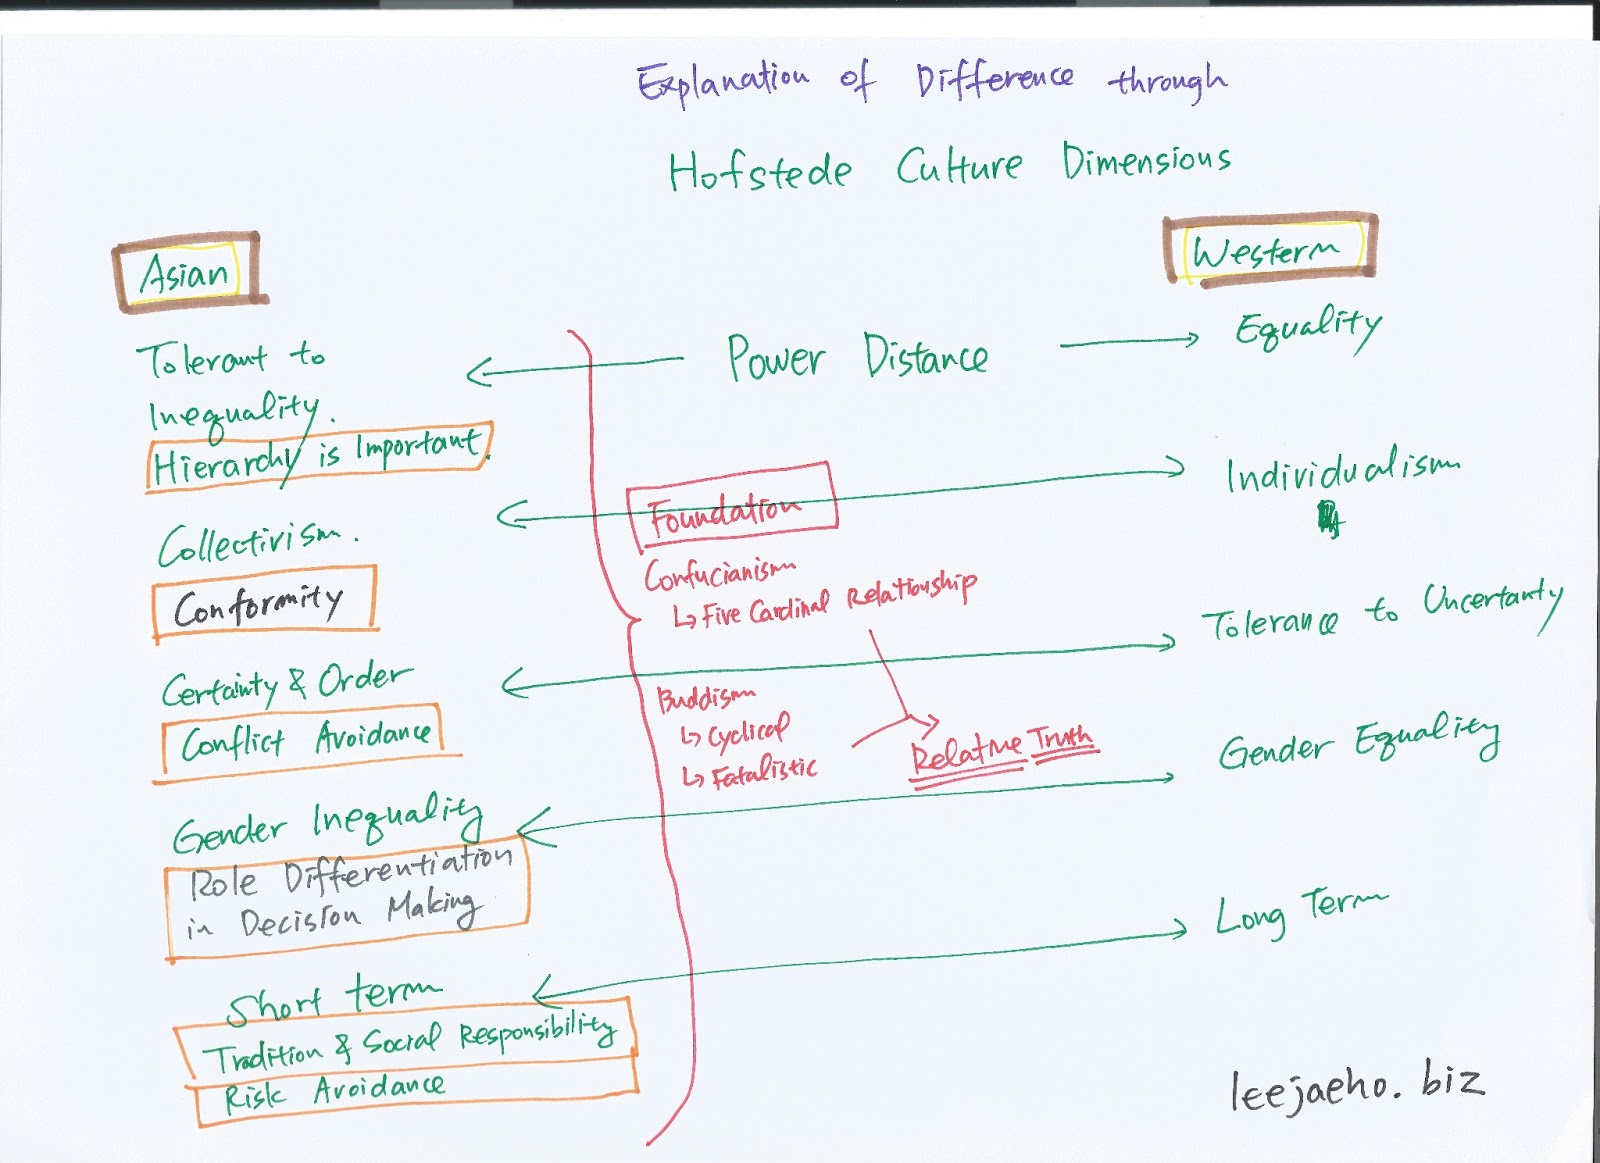 Explanation of Difference through
Hofstede Culture Dimensions
Asian
Western
Tolerant to
Inequality.
Hierarchy is Important.
Power Distance
Equality
Collectivism.
Conformity
Individualism
Foundation
Confucianism
↳ Five Cardinal Relationship
Certainty & Order
Conflict Avoidance
Tolerance to Uncertanty
Buddism
↳ Cyclical
↳ Fatalistic
Relative Truth
Gender Inequality
Role Differentiation
in Decision Making
Gender Equality
Short term
Tradition & Social Responsibility
Risk Avoidance
Long Term
leejaeho.biz